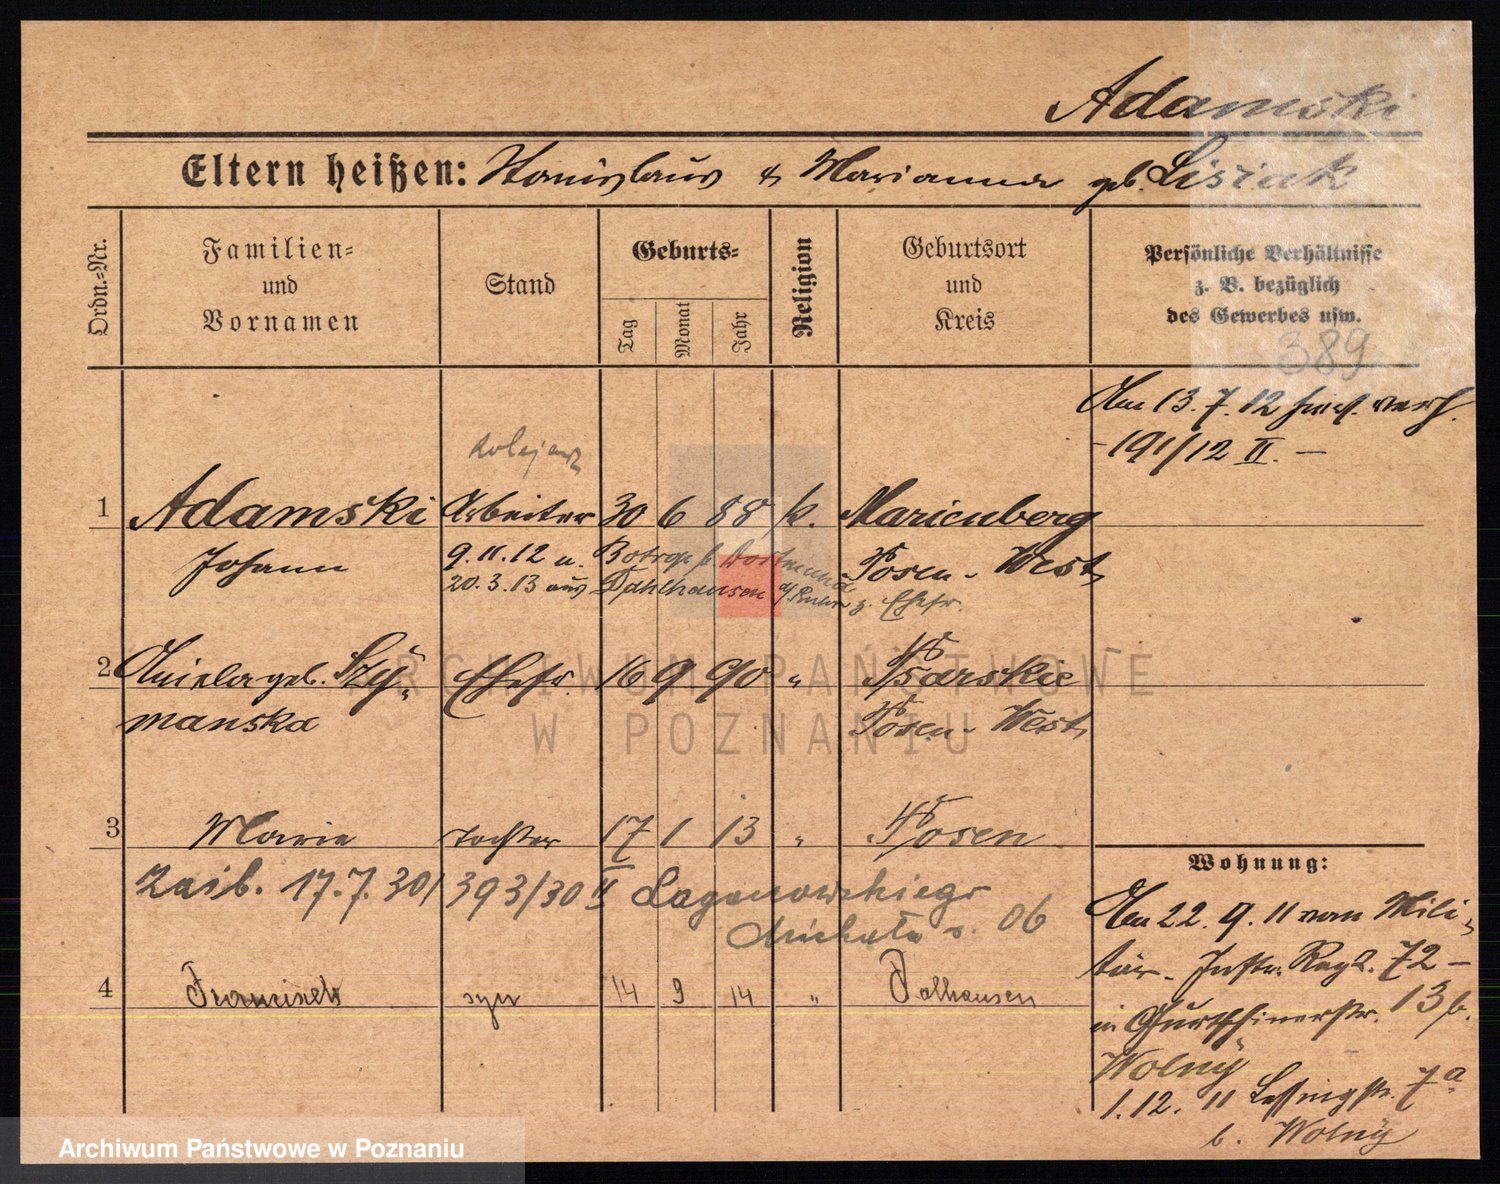 Adamski
Eltern heißen: Stanislaus & Marianna geb. Lisiak
Ordn.=Nr.
Familien=
und
Vornamen
Stand
Geburts=
Tag
Monat
Jahr
Religion
Geburtsort
und
Kreis
Persönliche Verhältnisse
z. B. bezüglich
des Gewerbes usw.
389
Am 13.7.12 verh.
191/12 II. —
kolejarz
1 Adamski Arbeiter 30 6 88 k. Marienberg
Johann 9.11.12 u. Botrop b. Dortmund Posen-West
20.3.13 aus Dahlhausen a/Ruhr z. Ehefr.
2 Aniela geb. Szy= Ehefr. 16 9 90 " Psarskie
manska Posen-West
3 Marie Tochter 17 1 13 " Posen
17.7.30 393/30 II
06
4 Francisek syn 14 9 14 " Dalhausen
Wohnung:
Am 22.9.11 vom Mili=
tär-Inftr. Regt. 72 —
in 13 b.
Wolny
1.12.11 Lessingstr. 7a
b. Wolny
ARCHIWUM PAŃSTWOWE
W POZNANIU
Archiwum Państwowe w Poznaniu